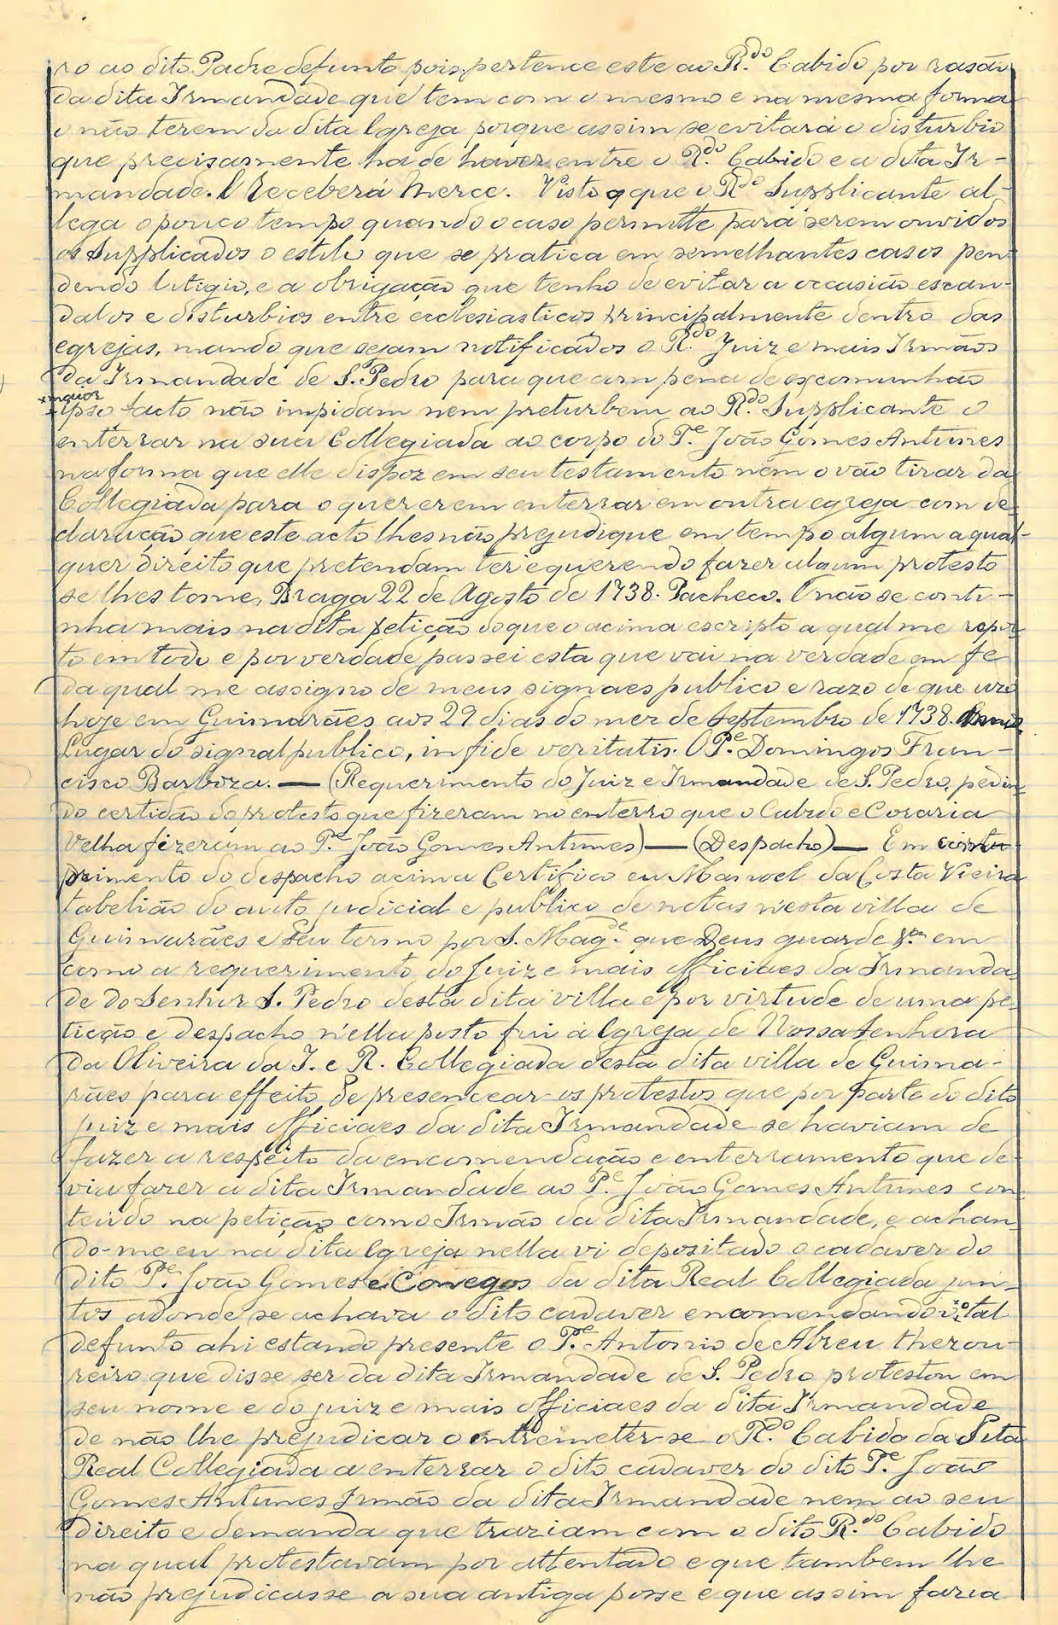 ro ao dito Padre defunto pois pertence este ao R.do Cabido por rasão
da dita Irmandade que tem com o mesmo e na mesma forma
o não terem da dita Igreja porque assim se evitará o disturbio
que precisamente ha de haver entre o R.do Cabido e a dita Ir-
mandade. E Receberá Merce. Visto o que o R.do Supplicante al-
lega o pouco tempo quando o caso permitte para serem ouvidos
os Supplicados o estilo que se pratica em semelhantes casos pen-
dendo litigio, e a obrigação que tenho de evitar a occasião escan-
dalos e disturbios entre ecclesiasticos principalmente dentro das
egrejas, mando que sejam notificados o R.do Juiz e mais Irmãos
da Irmandade de S. Pedro para que com pena de excomunhão
ipso facto não impidam nem preturbem ao R.do Supplicante o
enterrar na sua Collegiada ao corpo do P.e João Gomes Antunes
na forma que elle dispoz em seu testamento nem o vão tirar da
Collegiada para o quererem enterrar em outra egreja com de-
claração que este acto lhes não prejudique em tempo algum a qual-
quer direito que pretendam ter e querendo fazer algum protesto
se lhes tome, Braga 22 de Agosto de 1738. Pacheco. E não se conti-
nha mais na dita petição do que o acima escripto a qual me repor-
to em todo e por verdade passei esta que vai na verdade em fé
da qual me assigno de meus signaes publico e razo de que uzo
hoje em Guimarães aos 29 dias do mez de Septembro de 1738.
Lugar do signal publico, in fide veritatis. O P.e Domingos Fran-
cisco Barboza. — (Requerimento do Juiz e Irmandade de S. Pedro, pedin-
do certidão do protesto que fizeram no enterro que o Cabido e Coraria
Velha fizeram ao P.e João Gomes Antunes) — (Despacho) — Em
primento do despacho acima Certifico eu Manoel da Costa Vieira
tabelião do auto judicial e publico de notas n'esta villa de
Guimarães e seu termo por S. Mag.de que Deus guarde em
como a requerimento do Juiz e mais officiaes da Irmanda
de do Senhor S. Pedro desta dita villa e por virtude de uma pe-
tição e despacho n'ella posto fui á Igreja de Nossa Senhora
da Oliveira da I. e R. Collegiada desta dita villa de Guima-
rães para effeito de presencear os protestos que por parte do dito
juiz e mais officiaes da dita Irmandade se haviam de
fazer a respeito da encomendação e enterramento que de-
via fazer a dita Irmandade ao P.e João Gomes Antunes con-
teudo na petição como Irmão da dita Irmandade, e achan-
do-me eu na dita Igreja nella vi depositado o cadaver do
dito P.e João Gomes e Conegos da dita Real Collegiada jun-
tos adonde se achava o dito cadaver encomendando o tal
defunto ahi estando presente o P.e Antonio de Abreu thezou-
reiro que disse ser da dita Irmandade de S. Pedro protestou em
seu nome e do juiz e mais officiaes da dita Irmandade
de não lhe prejudicar o entremeter-se o R.do Cabido da dita
Real Collegiada a enterrar o dito cadaver do dito P.e João
Gomes Antunes Irmão da dita Irmandade nem ao seu
direito e demanda que traziam com o dito R.do Cabido
na qual protestavam por attentado e que tambem lhe
não prejudicasse a sua antiga posse e que assim faria